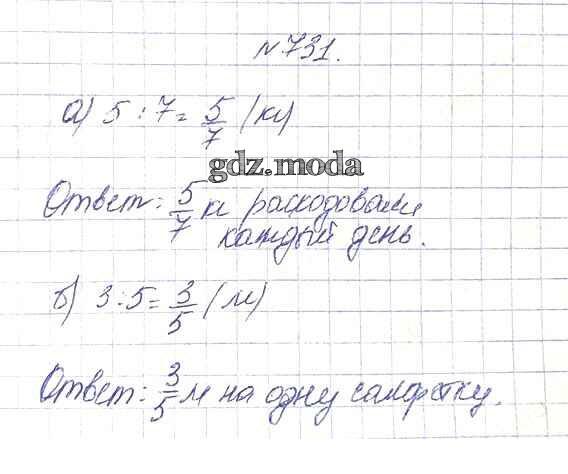 № 731.
а) 5 : 7 = 5/7 (кг)
gdz.moda
Ответ: 5/7 кг расходовали
каждый день.
б) 3 : 5 = 3/5 (м)
Ответ: 3/5 м на одну салфетку.